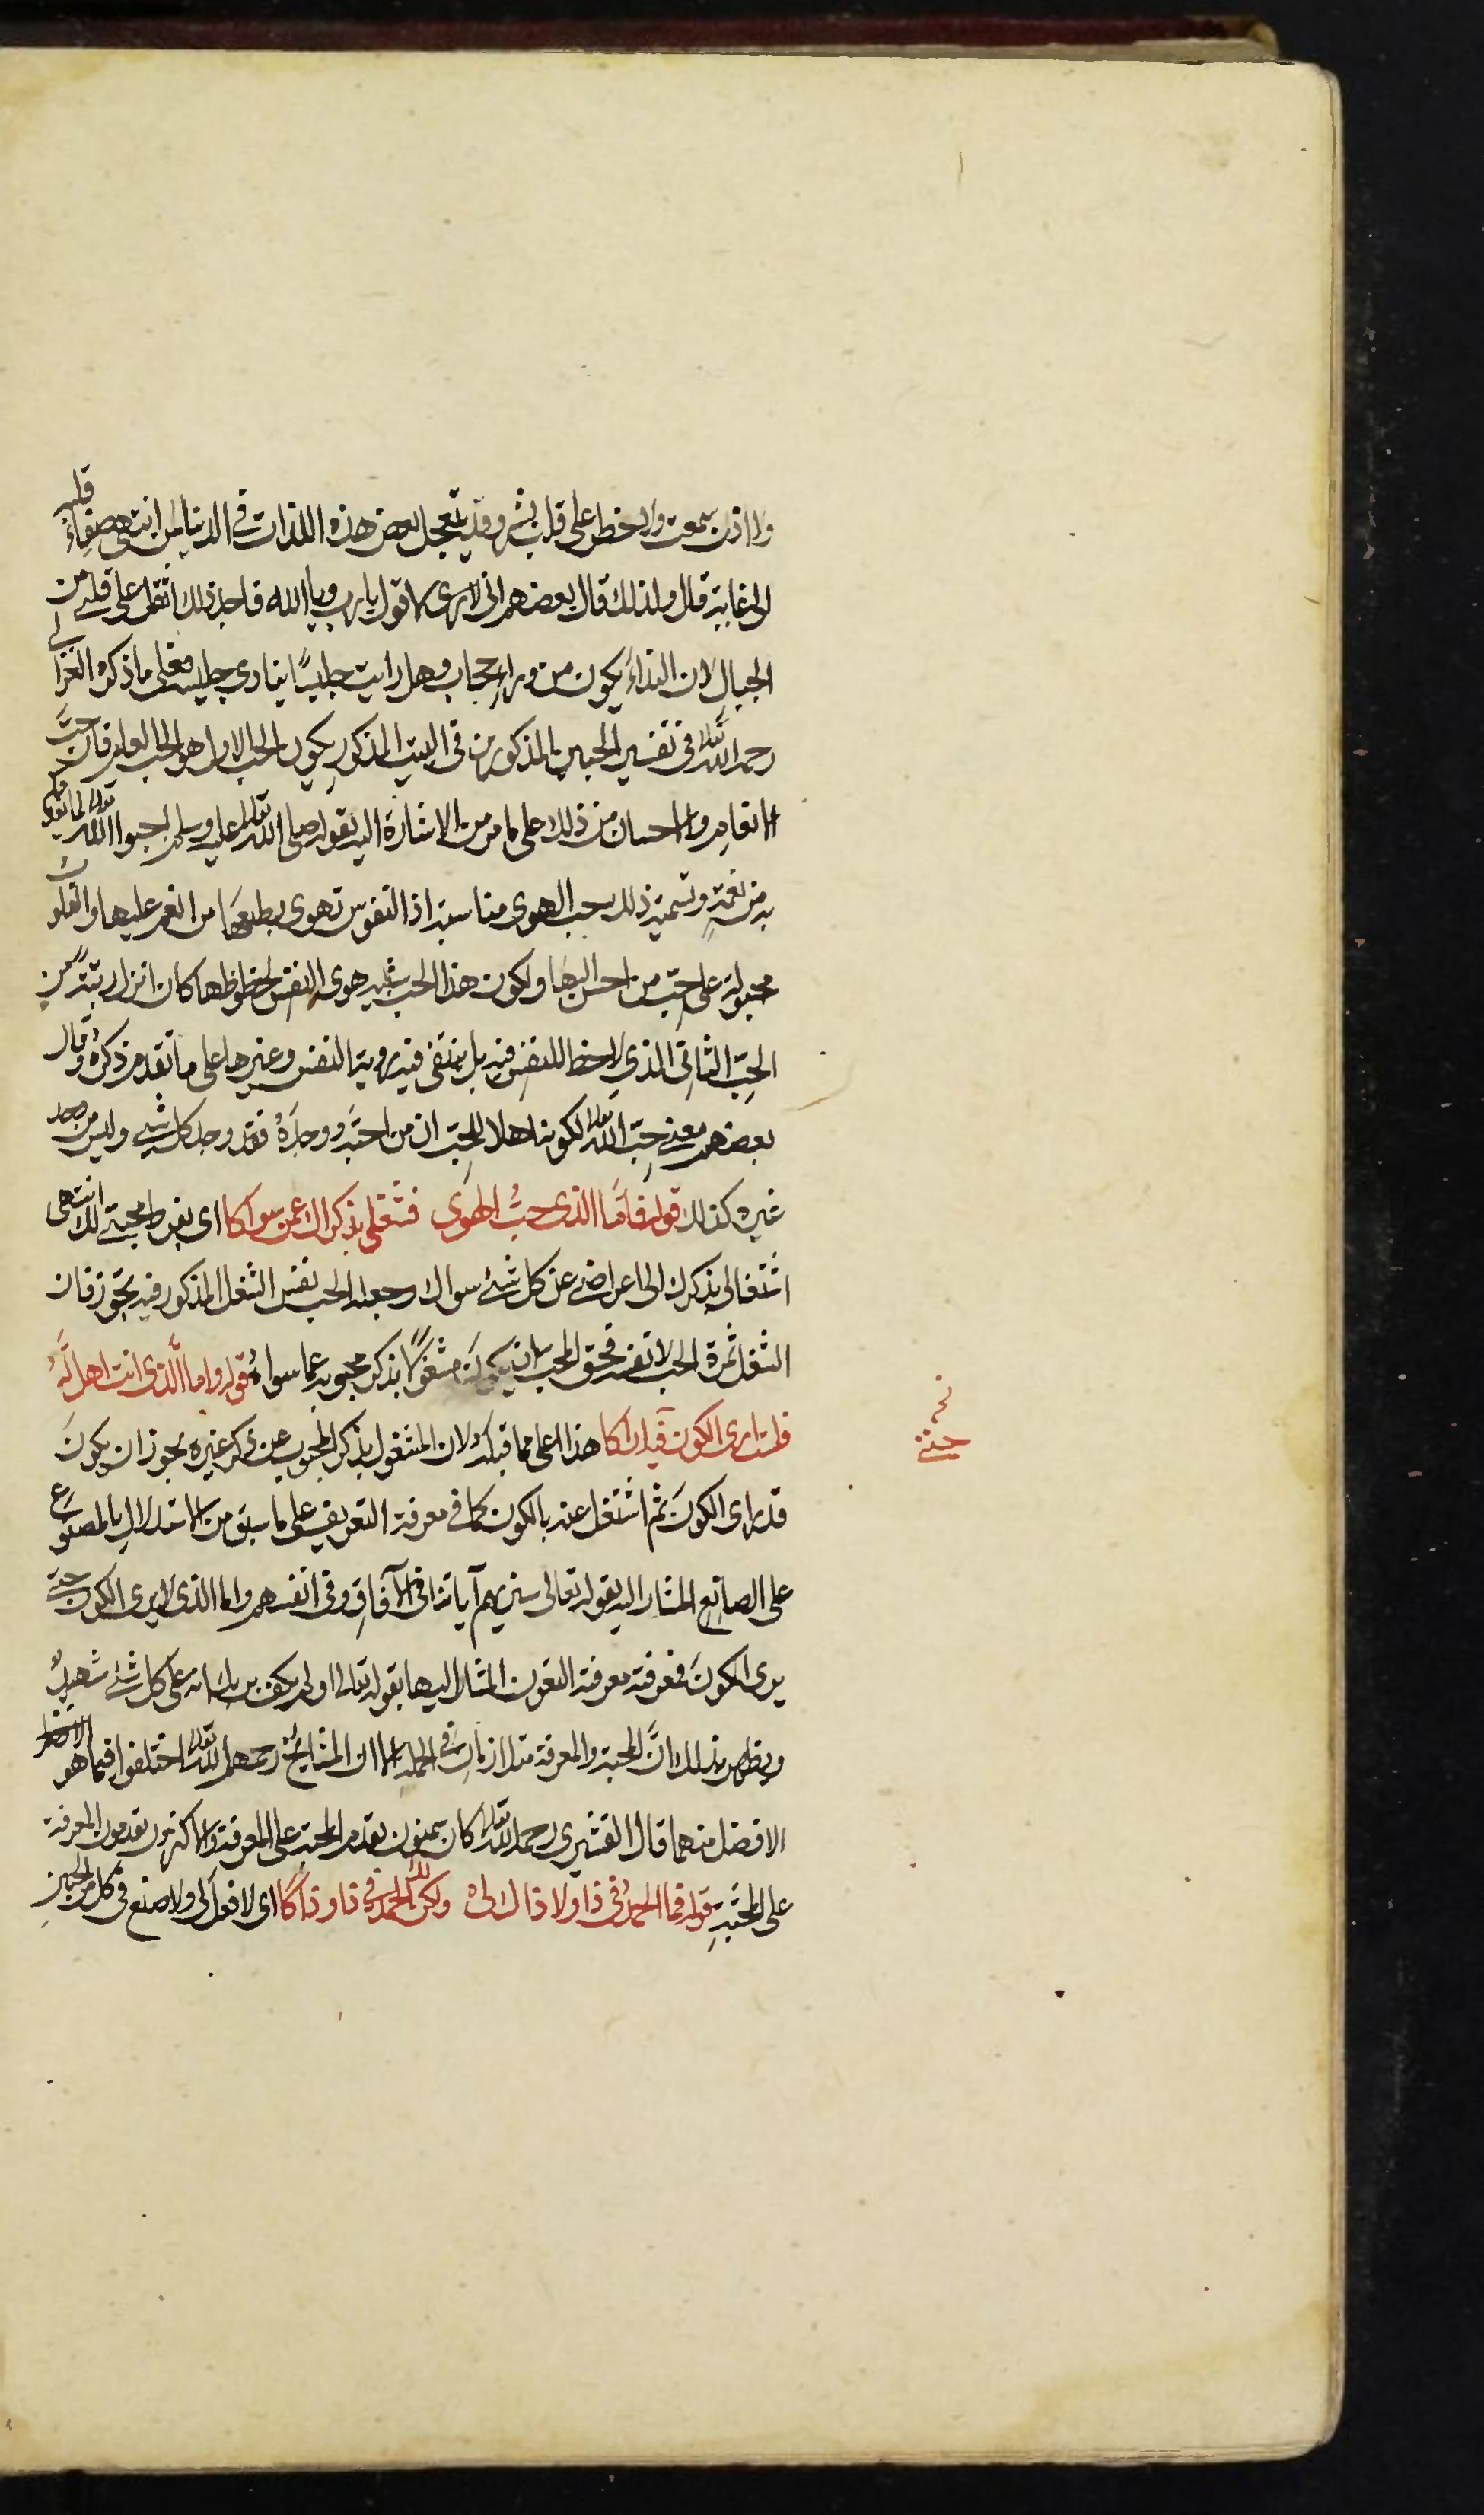 ولا اذن سمعت ولا خطر على قلب بشر وقد يتعجل بعض هذه اللذات في الدنيا لمن انتهى صفاء قلبه
الى غاية قال ولذلك قال بعضهم اني لا ارى اقول يا رب ويا الله فاجد ذلك اثقل على قلبي من
الجبال لان النداء يكون من وراء حجاب وهل رايت جليسًا ينادي جليسه فعلى ما ذكره الغزالي
رحمه الله تعالى في تفسير الحبين المذكورين في البيت المذكور يكون الحب الاول هو الحب العام فان حب
الانعام والاحسان من ذلك على ما مر من الاشارة اليه بقوله صلى الله تعالى عليه وسلم احبوا الله تعالى لما يغذوكم
به من نعمة وتسمية ذلك بحب الهوى مناسبة اذ النفوس تهوى بطبعها من انعم عليها والقلوب
مجبولة على حب من احسن اليها ولكون هذا الحب شبيه هوى النفس لحظوظها كان انزل رتبة من
الحب الثاني الذي لا حظ للنفس فيه بل ينتفي فيه رؤية النفس وغيرها على ما تقدم ذكره وقال
بعضهم معنى حب الله تعالى لكونه اهلا للحب ان من احبه ووجده فقد وجد كل شيء وليس من وجد
غيره كذلك قوله فاما الذي حب الهوى فشغلي بذكراك عن سواكا اي بفرط محبتي لك انتهى
اشتغالي بذكرك الى اعراضي عن كل شيء سواك وجعله الحب نفس الشغل المذكور فيه تجوز فان
الشغل ثمرة الحب لا نفسه فحق المحب ان يكون مشغولا بذكر محبوبه عما سواه قوله واما الذي انت اهل له
فلست ارى الكون حتى اراكا هذا اعلى مما قبله لان المشغول بذكر المحبوب عن ذكر غيره يجوز ان يكون
قد راى الكون ثم اشتغل عنه بالكون كما في معرفة التعريف على ما سبق من الاستدلال بالمصنوع
على الصانع المشار اليه بقوله تعالى سنريهم آياتنا في الآفاق وفي انفسهم واما الذي لا يرى الكون حتى
يرى المكون فمعرفته معرفة التعرف المشار اليها بقوله تعالى اولم يكف بربك انه على كل شيء شهيد
ويظهر بذلك ان المحبة والمعرفة متلازمان في الجملة الا ان المشايخ رحمهم الله تعالى اختلفوا فيما هو
الافضل منهما قال القشيري رحمه الله تعالى كان سمنون يقدم المحبة على المعرفة والاكثرون يقدمون المعرفة
على المحبة قوله فما الحمد في ذا ولا ذاك لي ولكن لك الحمد في ذا وذاكا اي لا فعل لي ولا صنع في كل من الحبين
حتى